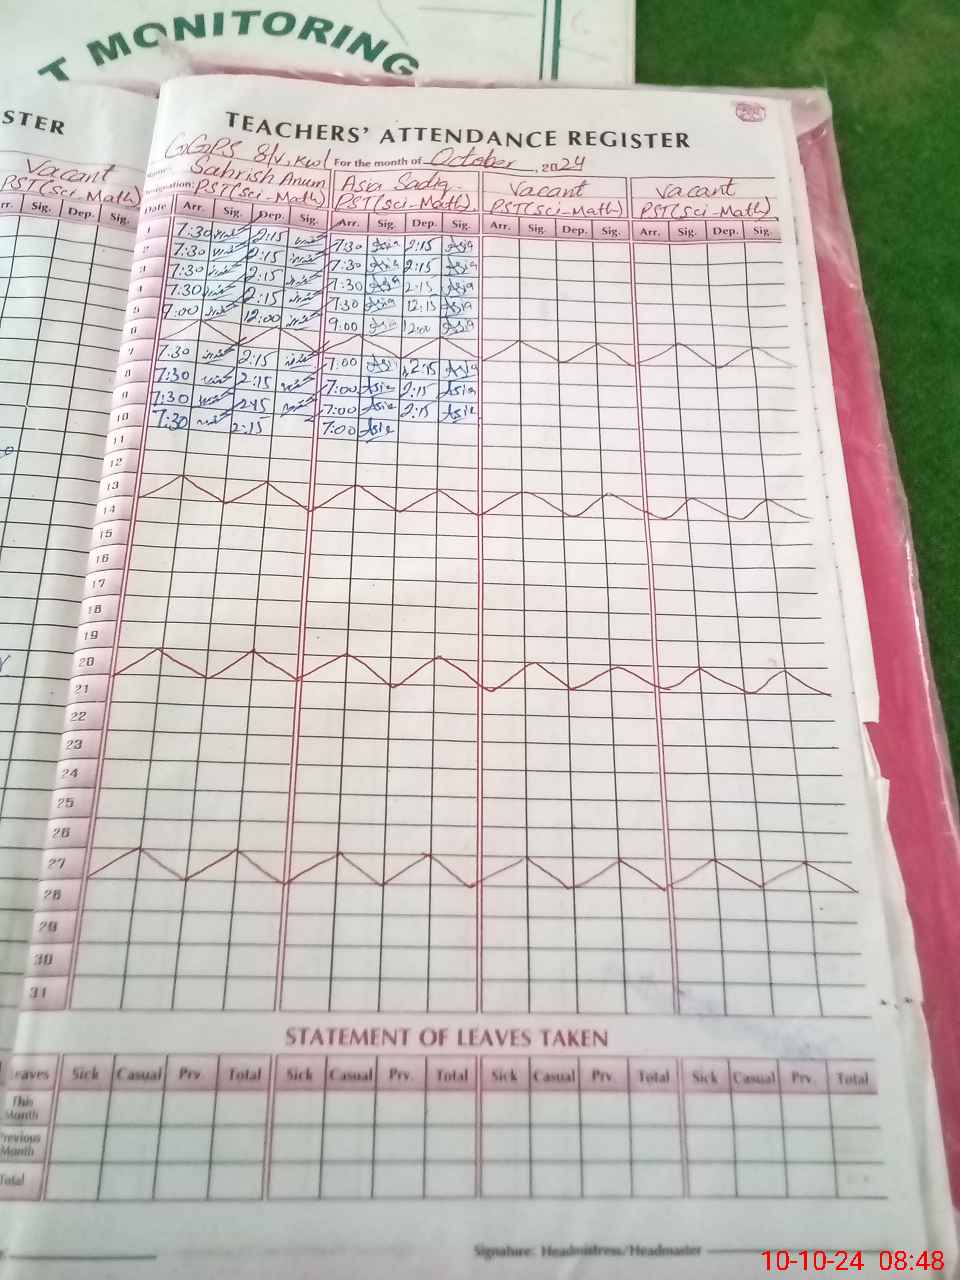 T MONITORING
STER
TEACHERS' ATTENDANCE REGISTER
GGPS 8/V, KWL For the month of October, 2024
Vacant Sahrish Anum Asia Sadiq Vacant Vacant
PST(Sci-Math) Designation: PST(Sci-Math) PST(Sci-Math) PST(Sci-Math) PST(Sci-Math)
Arr. Sig. Dep. Sig. Date Arr. Sig. Dep. Sig. Arr. Sig. Dep. Sig. Arr. Sig. Dep. Sig. Arr. Sig. Dep. Sig.
1 7:30 2:15 7:30 Asia 2:15 Asia
2 7:30 2:15 7:30 Asia 2:15 Asia
3 7:30 2:15 7:30 Asia 2:15 Asia
4 7:30 2:15 7:30 Asia 12:15 Asia
5 7:00 12:00 9:00 Asia 12:00 Asia
6
7 7:30 2:15 7:00 Asia 2:15 Asia
8 7:30 2:15 7:00 Asia 2:15 Asia
9 7:30 2:15 7:00 Asia 2:15 Asia
10 7:30 2:15 7:00 Asia
11
12
13
14
15
16
17
18
19
20
21
22
23
24
25
26
27
28
29
30
31
STATEMENT OF LEAVES TAKEN
Leaves Sick Casual Prv. Total Sick Casual Prv. Total Sick Casual Prv. Total Sick Casual Prv. Total
This Month
Previous Month
Total
Signature: Headmistress/Headmaster
10-10-24 08:48